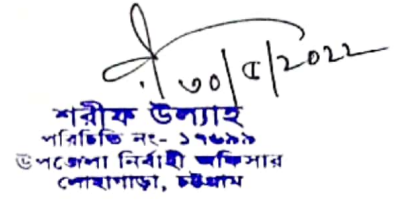 ৩০/৫/2022
শরীফ উল্যাহ
পরিচিতি নং- ১৭৬৯৯
উপজেলা নির্বাহী অফিসার
লোহাগাড়া, চট্টগ্রাম